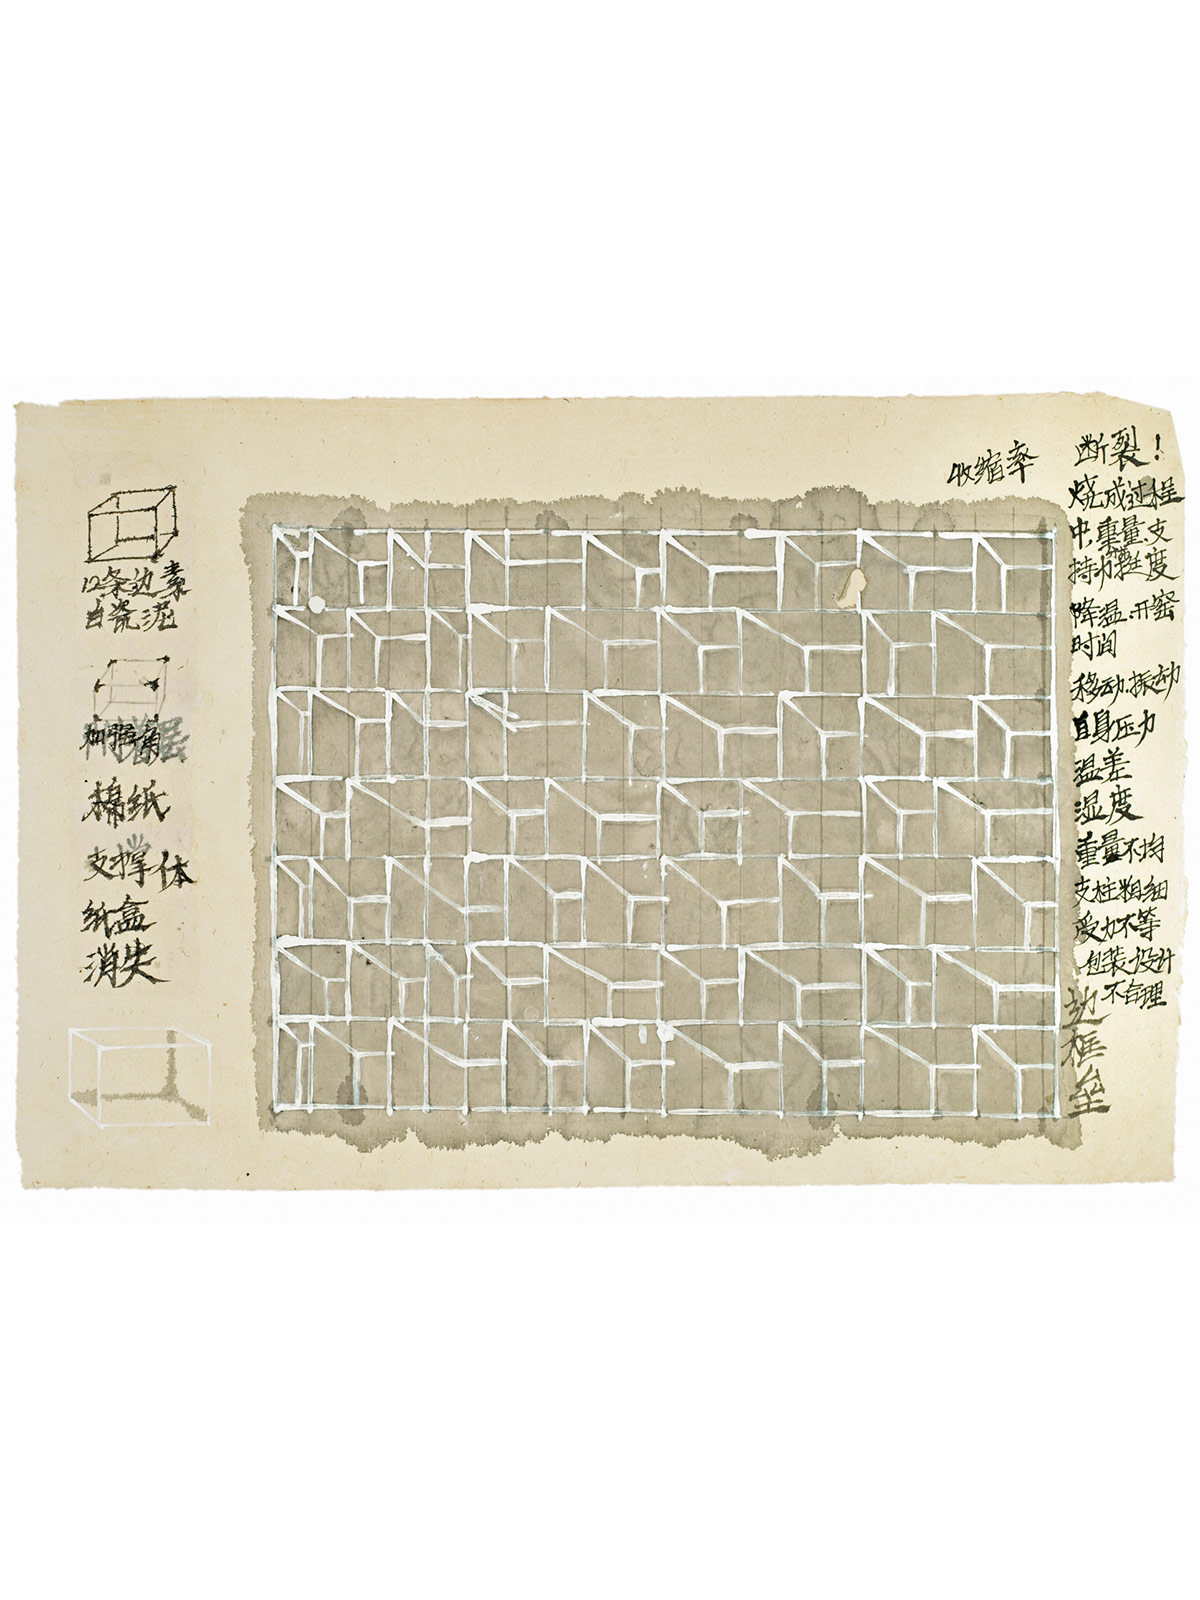 12条边素
白瓷泥
棉纸
支撑体
纸盒
消失
收缩率
断裂！
烧成过程
中.重量.支
持力.挺度
降温.开窑
时间
移动.振动
自身压力
温差
湿度
重量不均
支柱粗细
受力不等
包装设计
不合理
边
框
垒